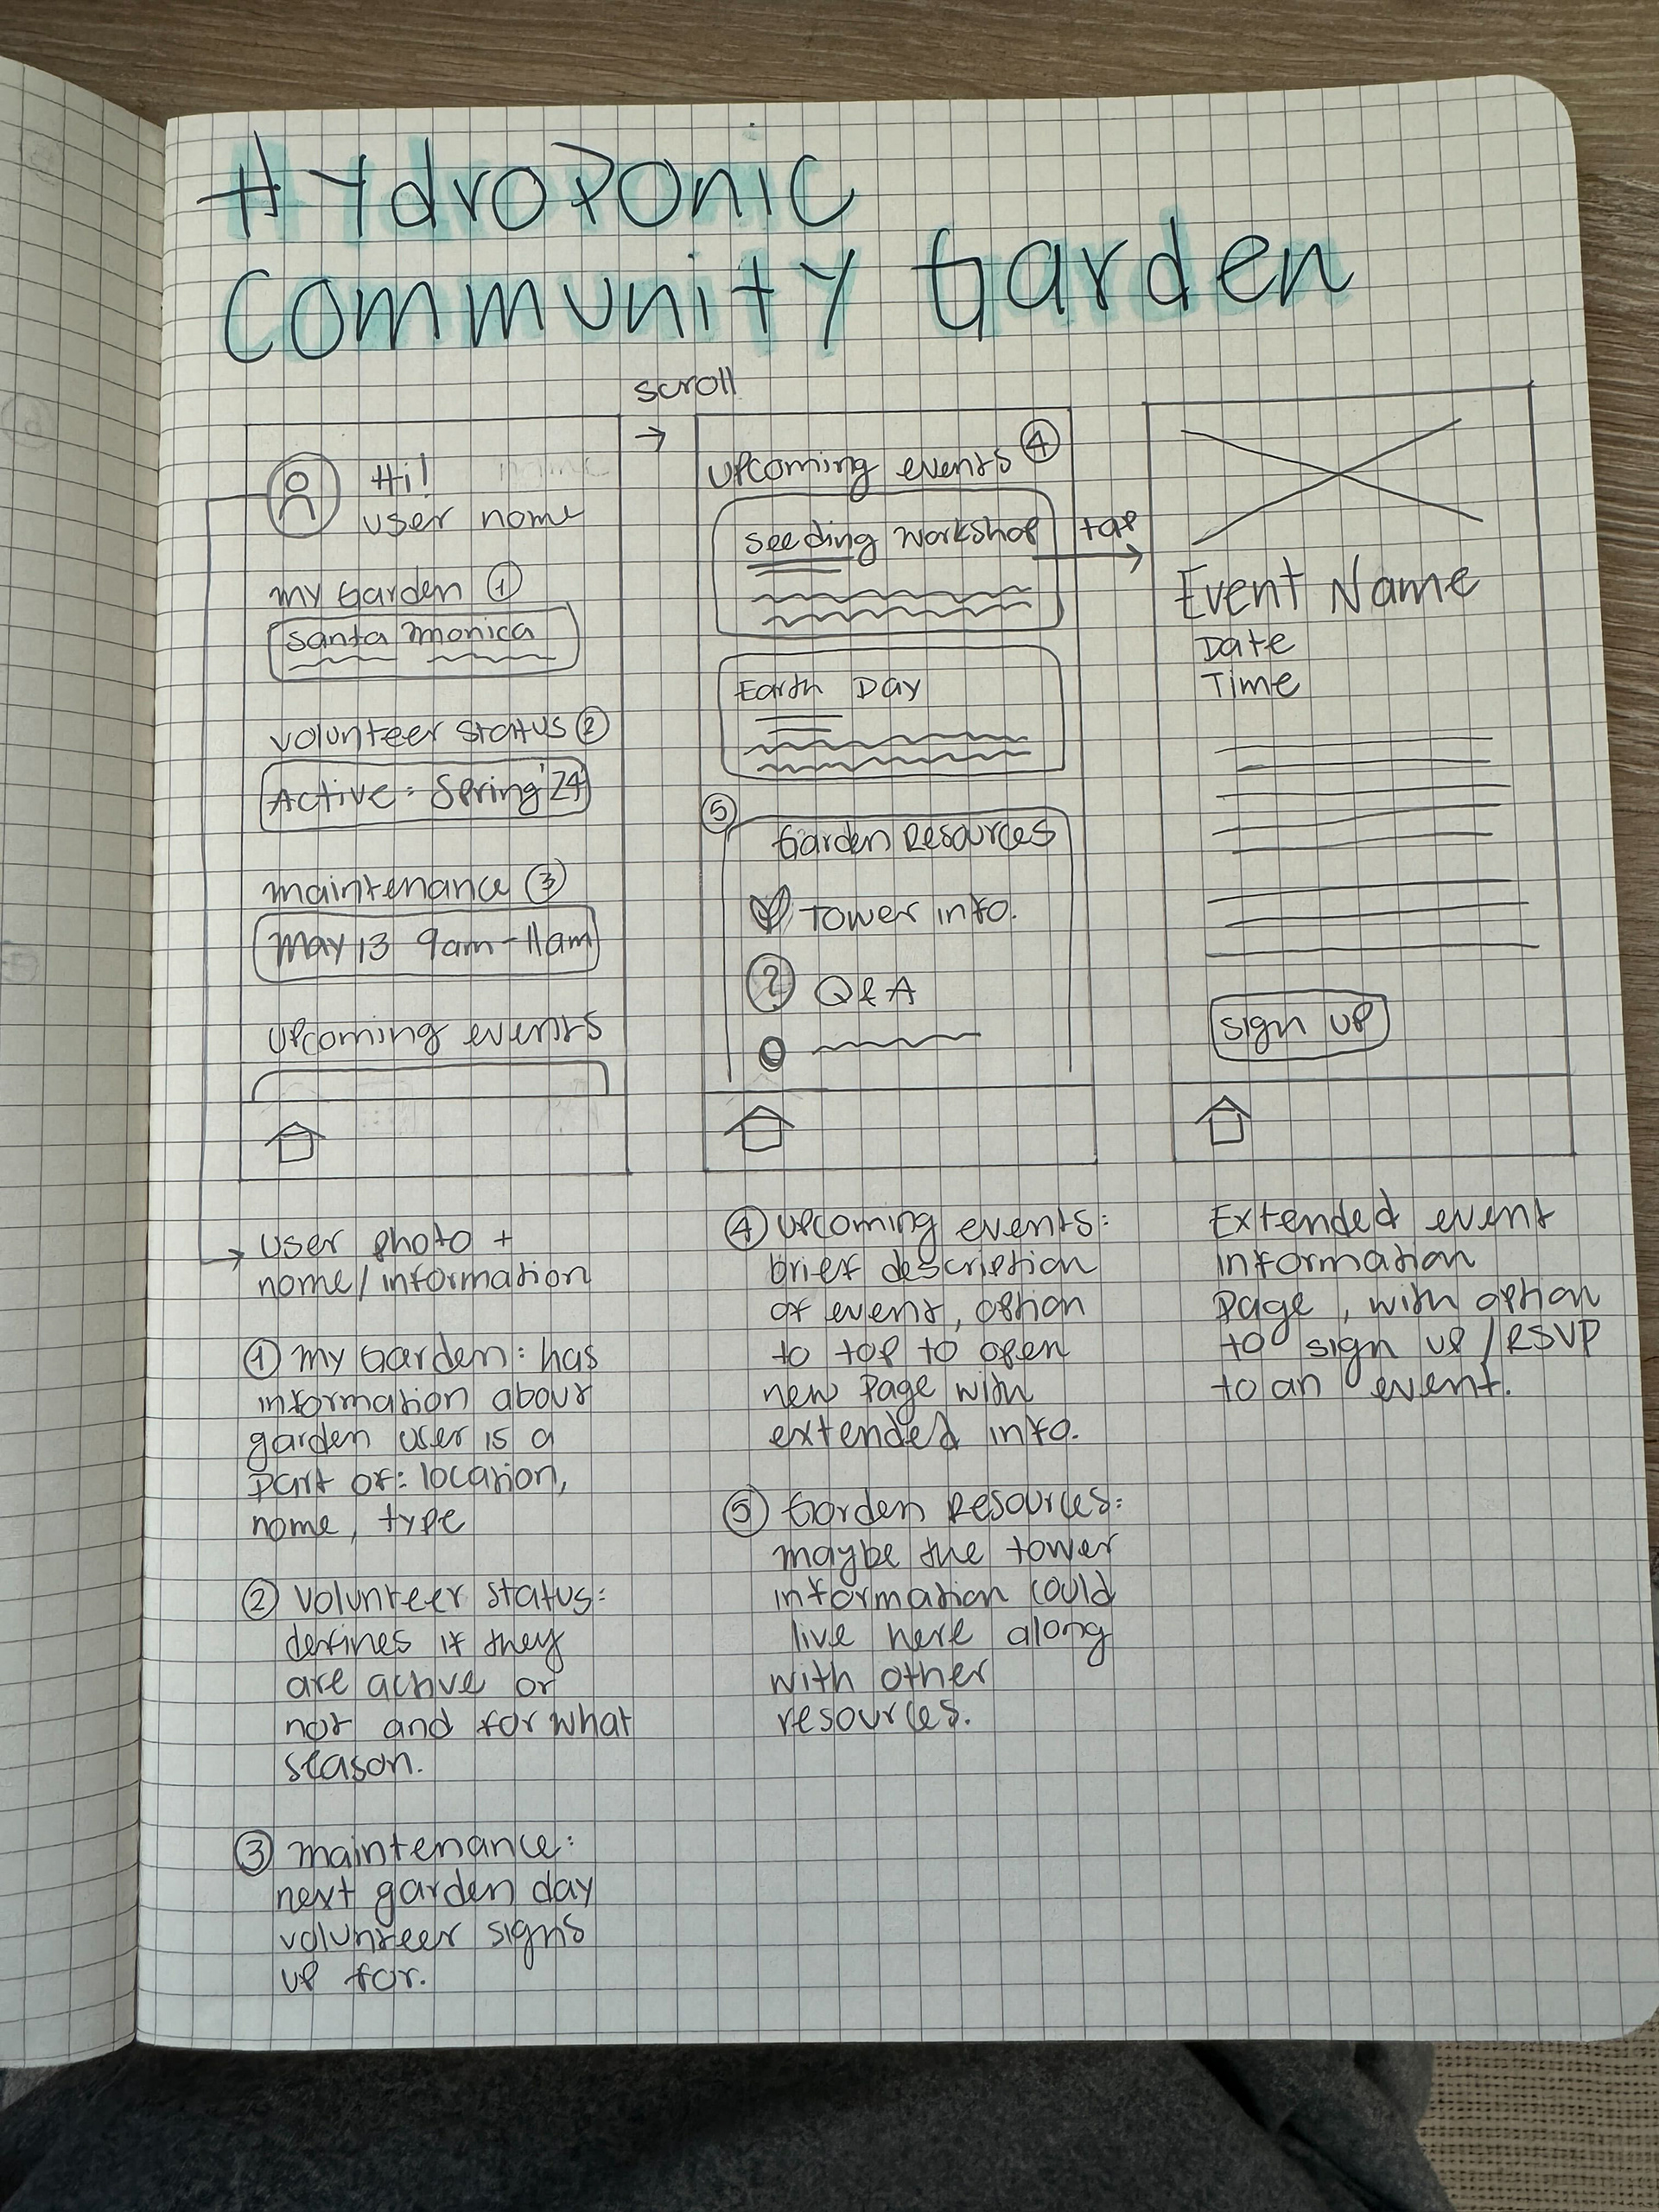 Hydroponic
Community Garden
scroll
Hi!
name
user name
My Garden ①
Santa Monica
Volunteer Status ②
Active: Spring '24
Maintenance ③
May 13 9am-11am
Upcoming events
Upcoming events ④
Seeding Workshop
tap
Earth Day
⑤
Garden Resources
Tower info.
? Q&A
Event Name
Date
Time
Sign up
user photo +
name/information
① My Garden: has
information about
garden user is a
part of: location,
name, type
② Volunteer Status:
defines if they
are active or
not and for what
season.
③ Maintenance:
next garden day
volunteer signs
up for.
④ Upcoming events:
brief description
of event, option
to tap to open
new page with
extended info.
⑤ Garden Resources:
maybe the tower
information could
live here along
with other
resources.
Extended event
information
page, with option
to sign up/RSVP
to an event.